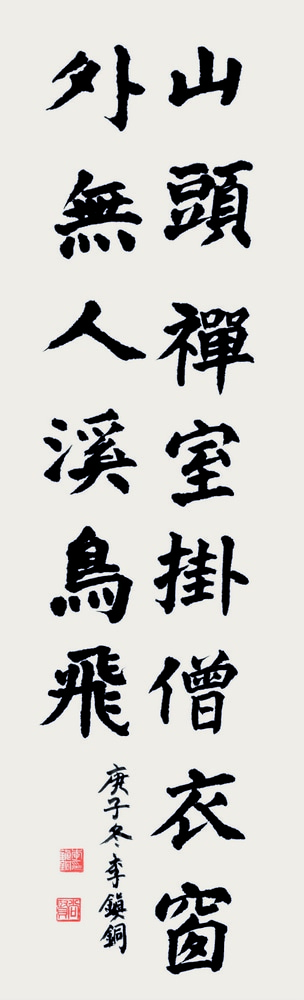 山頭禪室掛僧衣窗
外無人溪鳥飛
庚子冬李鎭銅